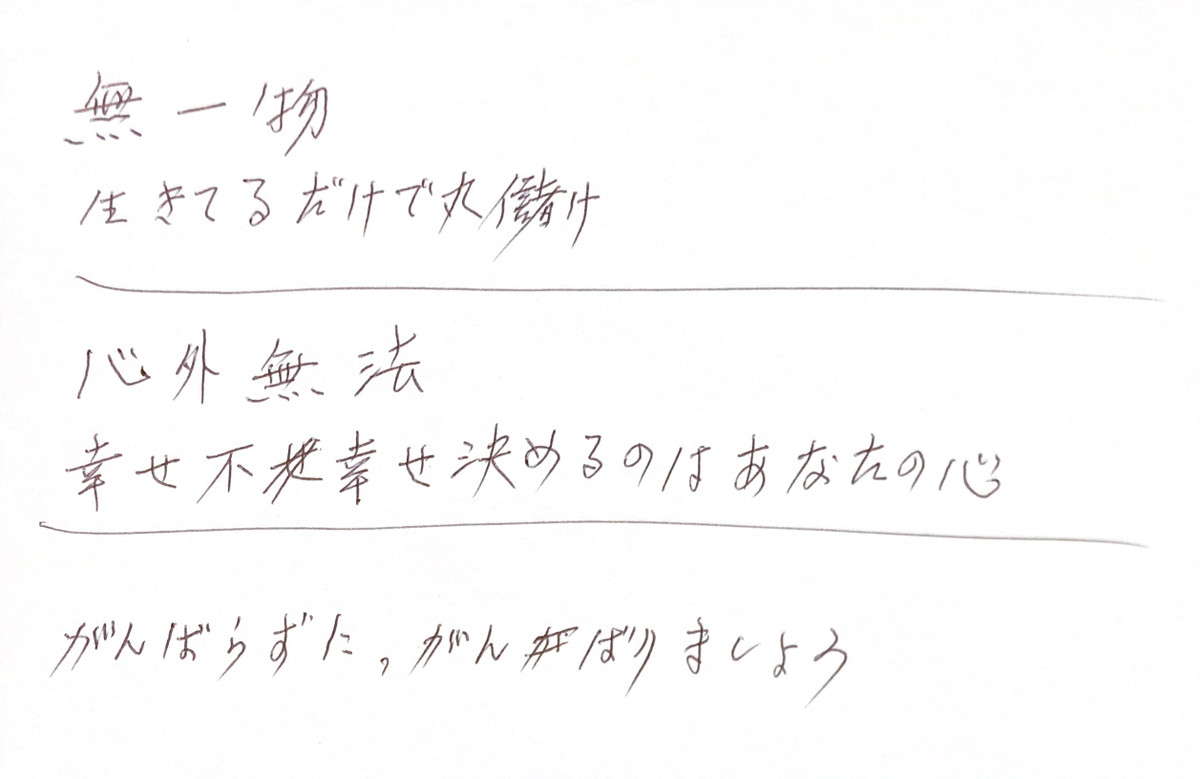 無一物
生きてるだけで丸儲け
心外無法
幸せ不幸せ決めるのはあなたの心
がんばらずに、がんばりましょう